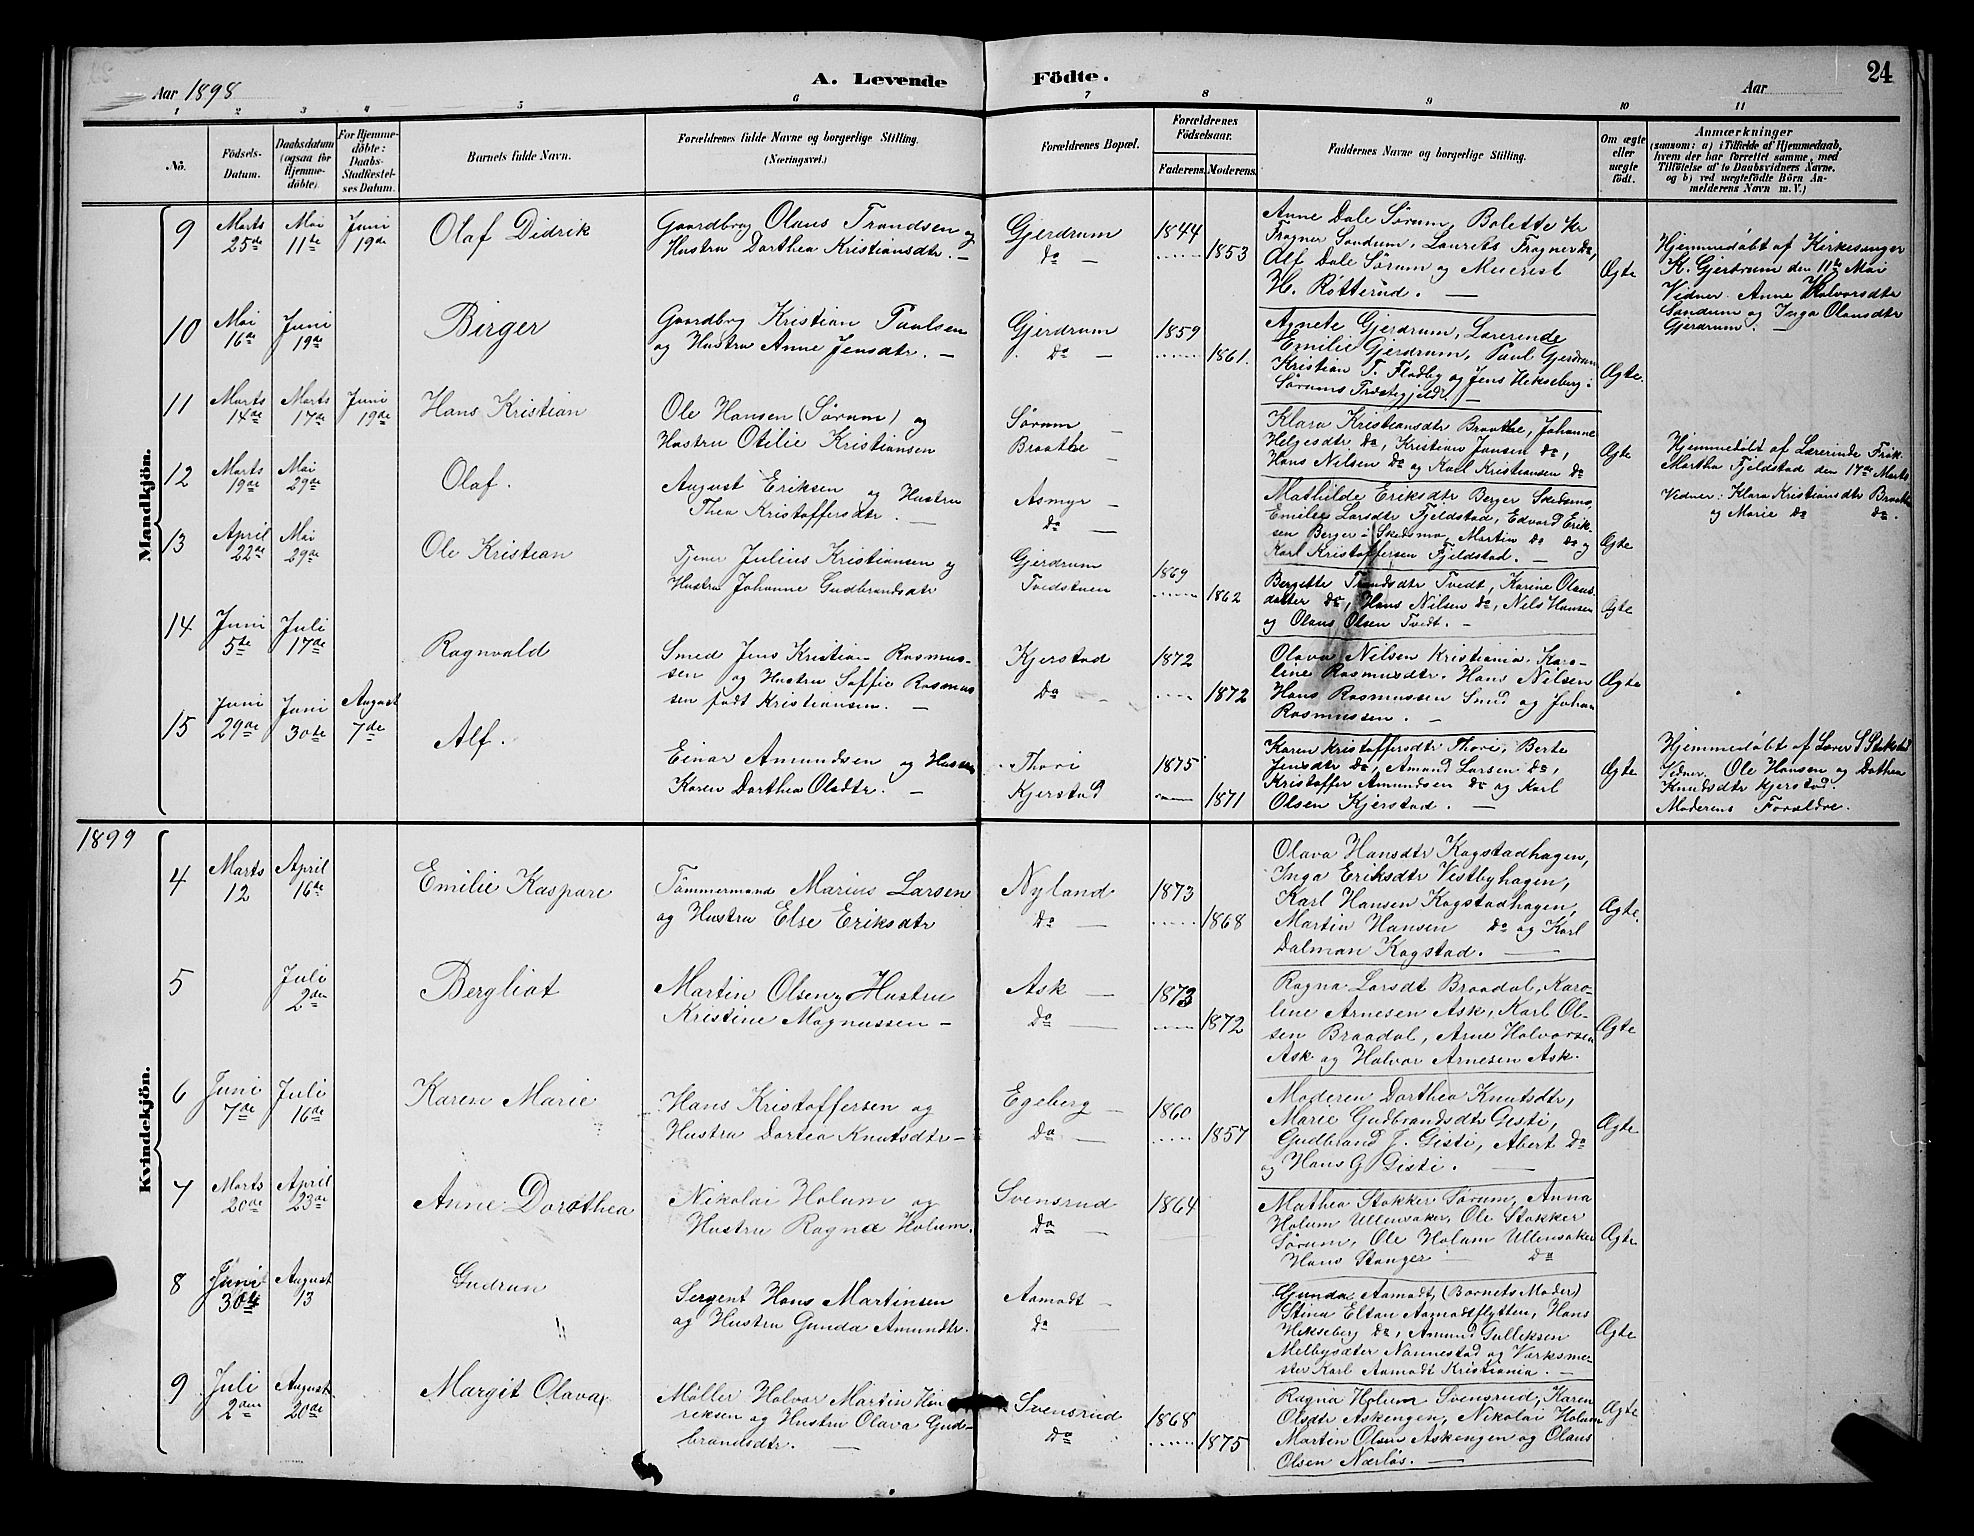 Aar 1898
A. Levende Födte.
Aar
24
1 2 3 4 5 6 7 8 9 10 11
No.
Födsels-Datum.
Daabsdatum (ogsaa for Hjemme-döbte).
For Hjemme-döbte: Daabs-Stadfæstel-ses Datum.
Barnets fulde Navn.
Forældrenes fulde Navne og borgerlige Stilling.
(Næringsvei.)
Forældrenes Bopæl.
Forældrenes Födselsaar.
Faderens. Moderens.
Faddernes Navne og borgerlige Stilling.
Om ægte eller uægte födt.
Anmærkninger
(saasom: a) i Tilfælde af Hjemmedaab,
hvem der har forrettet samme, med
Tilföielse af to Daabsvidners Navne,
og b) ved uægtefödte Börn An-
melderens Navn m. V.)
Mandkjön.
9
Marts 25de
Mai 11te
Juni 19de
Olaf Didrik
Gaardbrg Olaus Trondsen og
Hustru Dorthea Kristiansdtr. —
Gjerdrum
do —
1844
1853
Anne Dale Sørum, Bolette Kr
Fragner Sandum, Laurits Fragner do,
Alf Dale Sørum og Meierest
H. Røtterud. —
Ægte
Hjemmedøbt af Kirkesanger
K. Gjerdrum den 11te Mai
Vidner. Anne Halvorsdtr
Sandrum og Inga Olausdtr
Gjerdrum. —
10
Mai 16de
Juni 19de
Birger
Gaardbrg Kristian Paulsen
og Hustru Anne Jensdtr. —
Gjerdrum
do —
1859
1861.
Agnete Gjerdrum, Lærerinde
Emilie Gjerdrum, Paul Gjerdrum
Kristian T. Fladby og Jens Hekseberg i
Sørums Præstegjeld. —
Ægte.
11
Marts 14de
Marts 17de
Juni 19de
Hans Kristian
Ole Hansen (Sørum) og
Hustru Otilie Kristiansen
Sørum —
Braathe —
Klara Kristiansdtr Braathe, Johanne
Helgesdtr do, Kristian Jansen do,
Hans Nilsen do og Karl Kristiansen do
Ægte
Hjemmedøbt af Lærerinde Frøk.
Martha Fjeldstad den 17de Marts
Vidner: Klara Kristiansdtr Braathe
og Marie do do.
12
Marts 19de
Mai 29de
Olaf.
August Eriksen og Hustru
Thea Kristoffersdtr. —
Asmyr
do —
Mathilde Eriksdtr Berger Skedsmo,
Emilie Larsdtr Fjeldstad, Edvard Erik-
sen Berger i Skedsmo, Martin do do og
Karl Kristoffersen Fjeldstad. —
Ægte
13
April 22de
Mai 29de
Ole Kristian
Tjener Julius Kristiansen og
Hustru Johanne Gudbrandsdtr
Gjerdrum
Tvedstuen
1869
1862
Bergette Trondsdtr Tvedt, Karine Olaus-
datter do, Hans Nilsen do, Nils Hansen
og Olaus Olsen Tvedt. —
Ægte
14
Juni 5te
Juli 17de
Ragnvald
Smed Jens Kristian Rasmus-
sen og Hustru Soffie Rasmus-
sen født Kristiansen. —
Kjerstad
do —
1872
1872
Olava Nilsen Kristiania. Karo-
line Rasmusdtr. Hans Nilsen
Hans Rasmussen Smed og Johan
Rasmussen. —
Ægte
15
Juni 29de
Juni 30te
August 7de
Alf.
Einar Amundsen og Hustru
Karen Dorthea Olsdtr. —
Thori
Kjerstad
1875
1871
Karen Kristoffersdtr Thori, Berte
Jensdtr do, Amund Larsen do,
Kristoffer Amundsen do og Karl
Olsen Kjerstad. —
Ægte
Hjemmedøbt af Lærer S Stokstad
Vidner. Ole Hansen og Dothea
Knudsdtr Kjerstad.
Moderens Forældre.
1899
Kvindekjön.
4
Marts 12
April 16de
Emilie Kaspare
Tømmermand Marius Larsen
og Hustru Else Eriksdtr
Nyland
do —
1873
1868
Olava Hansdtr Kogstadhagen,
Inga Eriksdtr Vestbyhagen,
Karl Hansen Kogstadhagen,
Martin Hansen do og Karl
Dalman Kogstad. —
Ægte.
5
Juli 2den
Bergliot
Martin Olsen, Hustru
Kristine Magnussen —
Ask —
do —
1873
1872
Ragna Larsdt Braadal, Karo-
line Arnesen Ask, Karl Ol-
sen Braadal, Arne Halvorsen
Ask og Halvor Arnesen Ask.
Ægte
6
Juni 7de
Juli 16de
Karen Marie
Hans Kristoffersen og
Hustru Dortea Knutsdtr —
Egeberg —
do —
1860
1857
Moderen Dorthea Knutsdtr,
Marie Gudbrandsdtr Gisti,
Gudbrand J. Gisti, Abert do
og Hans G Gisti. —
Ægte
7
Marts 20de
April 23de
Anne Dorothea
Nikolai Holum og
Hustru Ragna Holum.
Svensrud
do —
1864
Mathea Stokker Sørum, Anna
Holum Ullensaker, Ole Stokker
Sørum, Ole Holum Ullensaker
Hans Stanger do
Ægte
8
Juni 30te
August 13
Gudrun
Sergent Hans Martinsen
og Hustru Gunda Amundtr.
Aamodt —
do —
Gunda Aamodt, (Barnets Moder)
Stina Eltan Aamodtflytten, Hans
Hekseberg do, Amund Gulliksen
Melbysdter Nannestad og Værksme-
ster Karl Aamodt Kristiania. —
Ægte
9
Juli 2den
August 20de
Margit Olava
Møller Halvor Martin Hen-
riksen og Hustru Olava Gud-
brandsdtr. —
Svensrud
do
1868
1875
Ragna Holum Svensrud, Karen
Olsdtr Askengen, Nikolai Holum
Martin Olsen Askengen og Olaus
Olsen Nærløs. —
Ægte